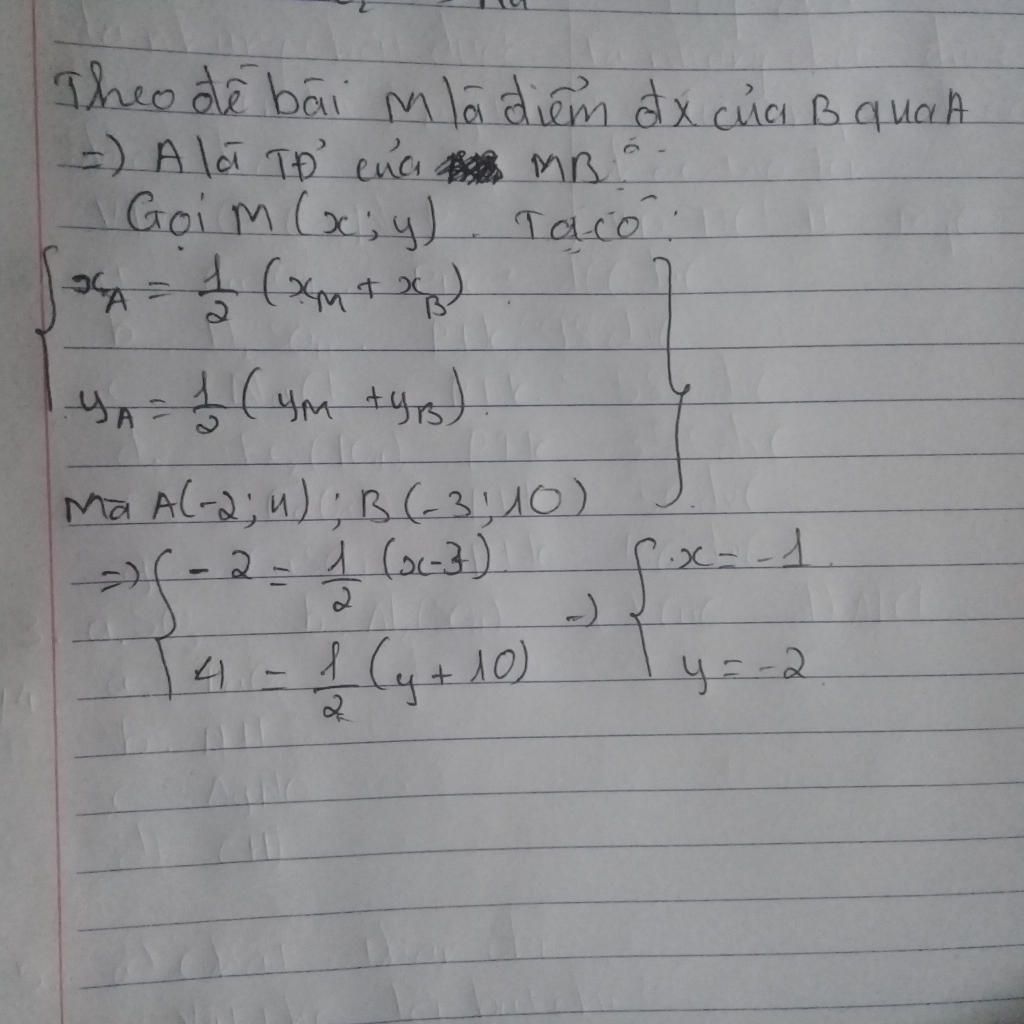 Theo đề bài M là điểm đx của B qua A
=) A là TĐ của MB.
Gọi M (x; y). Ta có:
{ x_A = 1/2 (x_M + x_B)
y_A = 1/2 (y_M + y_B) }
Mà A(-2; 4); B(-3; 10)
=) { -2 = 1/2 (x-3) =) { x = -1
4 = 1/2 (y + 10) y = -2